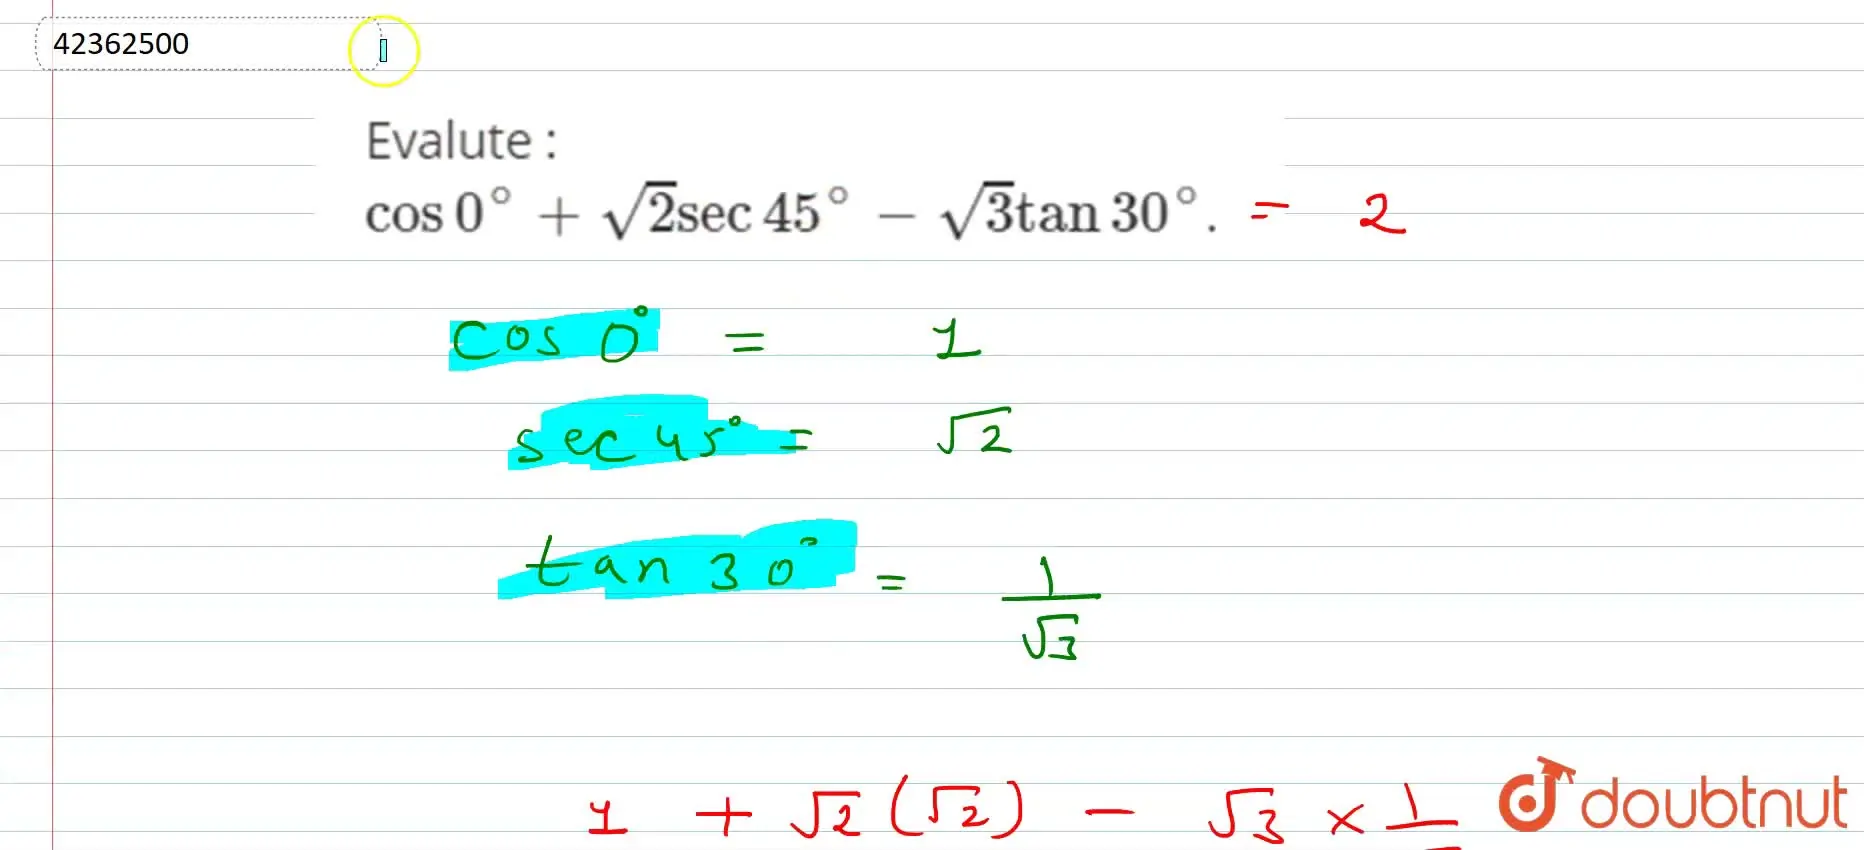 42362500
Evalute :
cos 0° + √2sec 45° − √3tan 30°. = 2
cos 0° = 1
sec 45° = √2
tan 30° = 1/√3
1 + √2 (√2) − √3 × 1
doubtnut